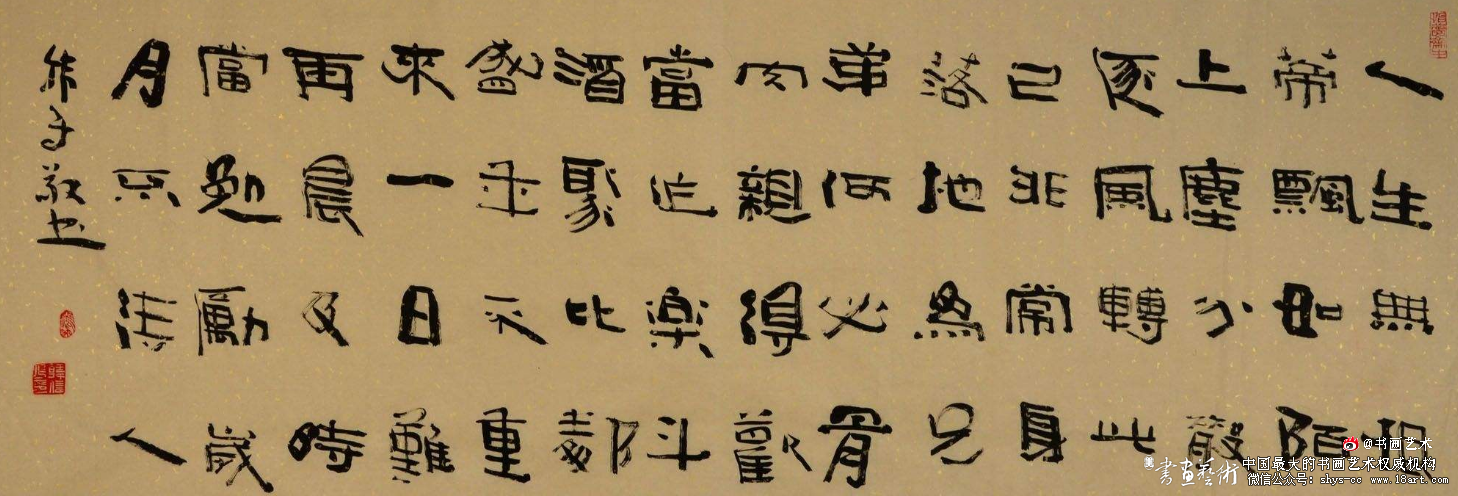 人生無根
蒂飄如陌
上塵分散
逐風轉此
已非常身
落地為兄
弟何必骨
肉親得歡
當作樂斗
酒聚比鄰
盛年不重
來一日難
再晨及時
當勉勵歲
月不待人
子敬书
@书画艺术
書畫藝術 中国最大的书画艺术权威机构
微信公众号: shys-cc www.18art.com